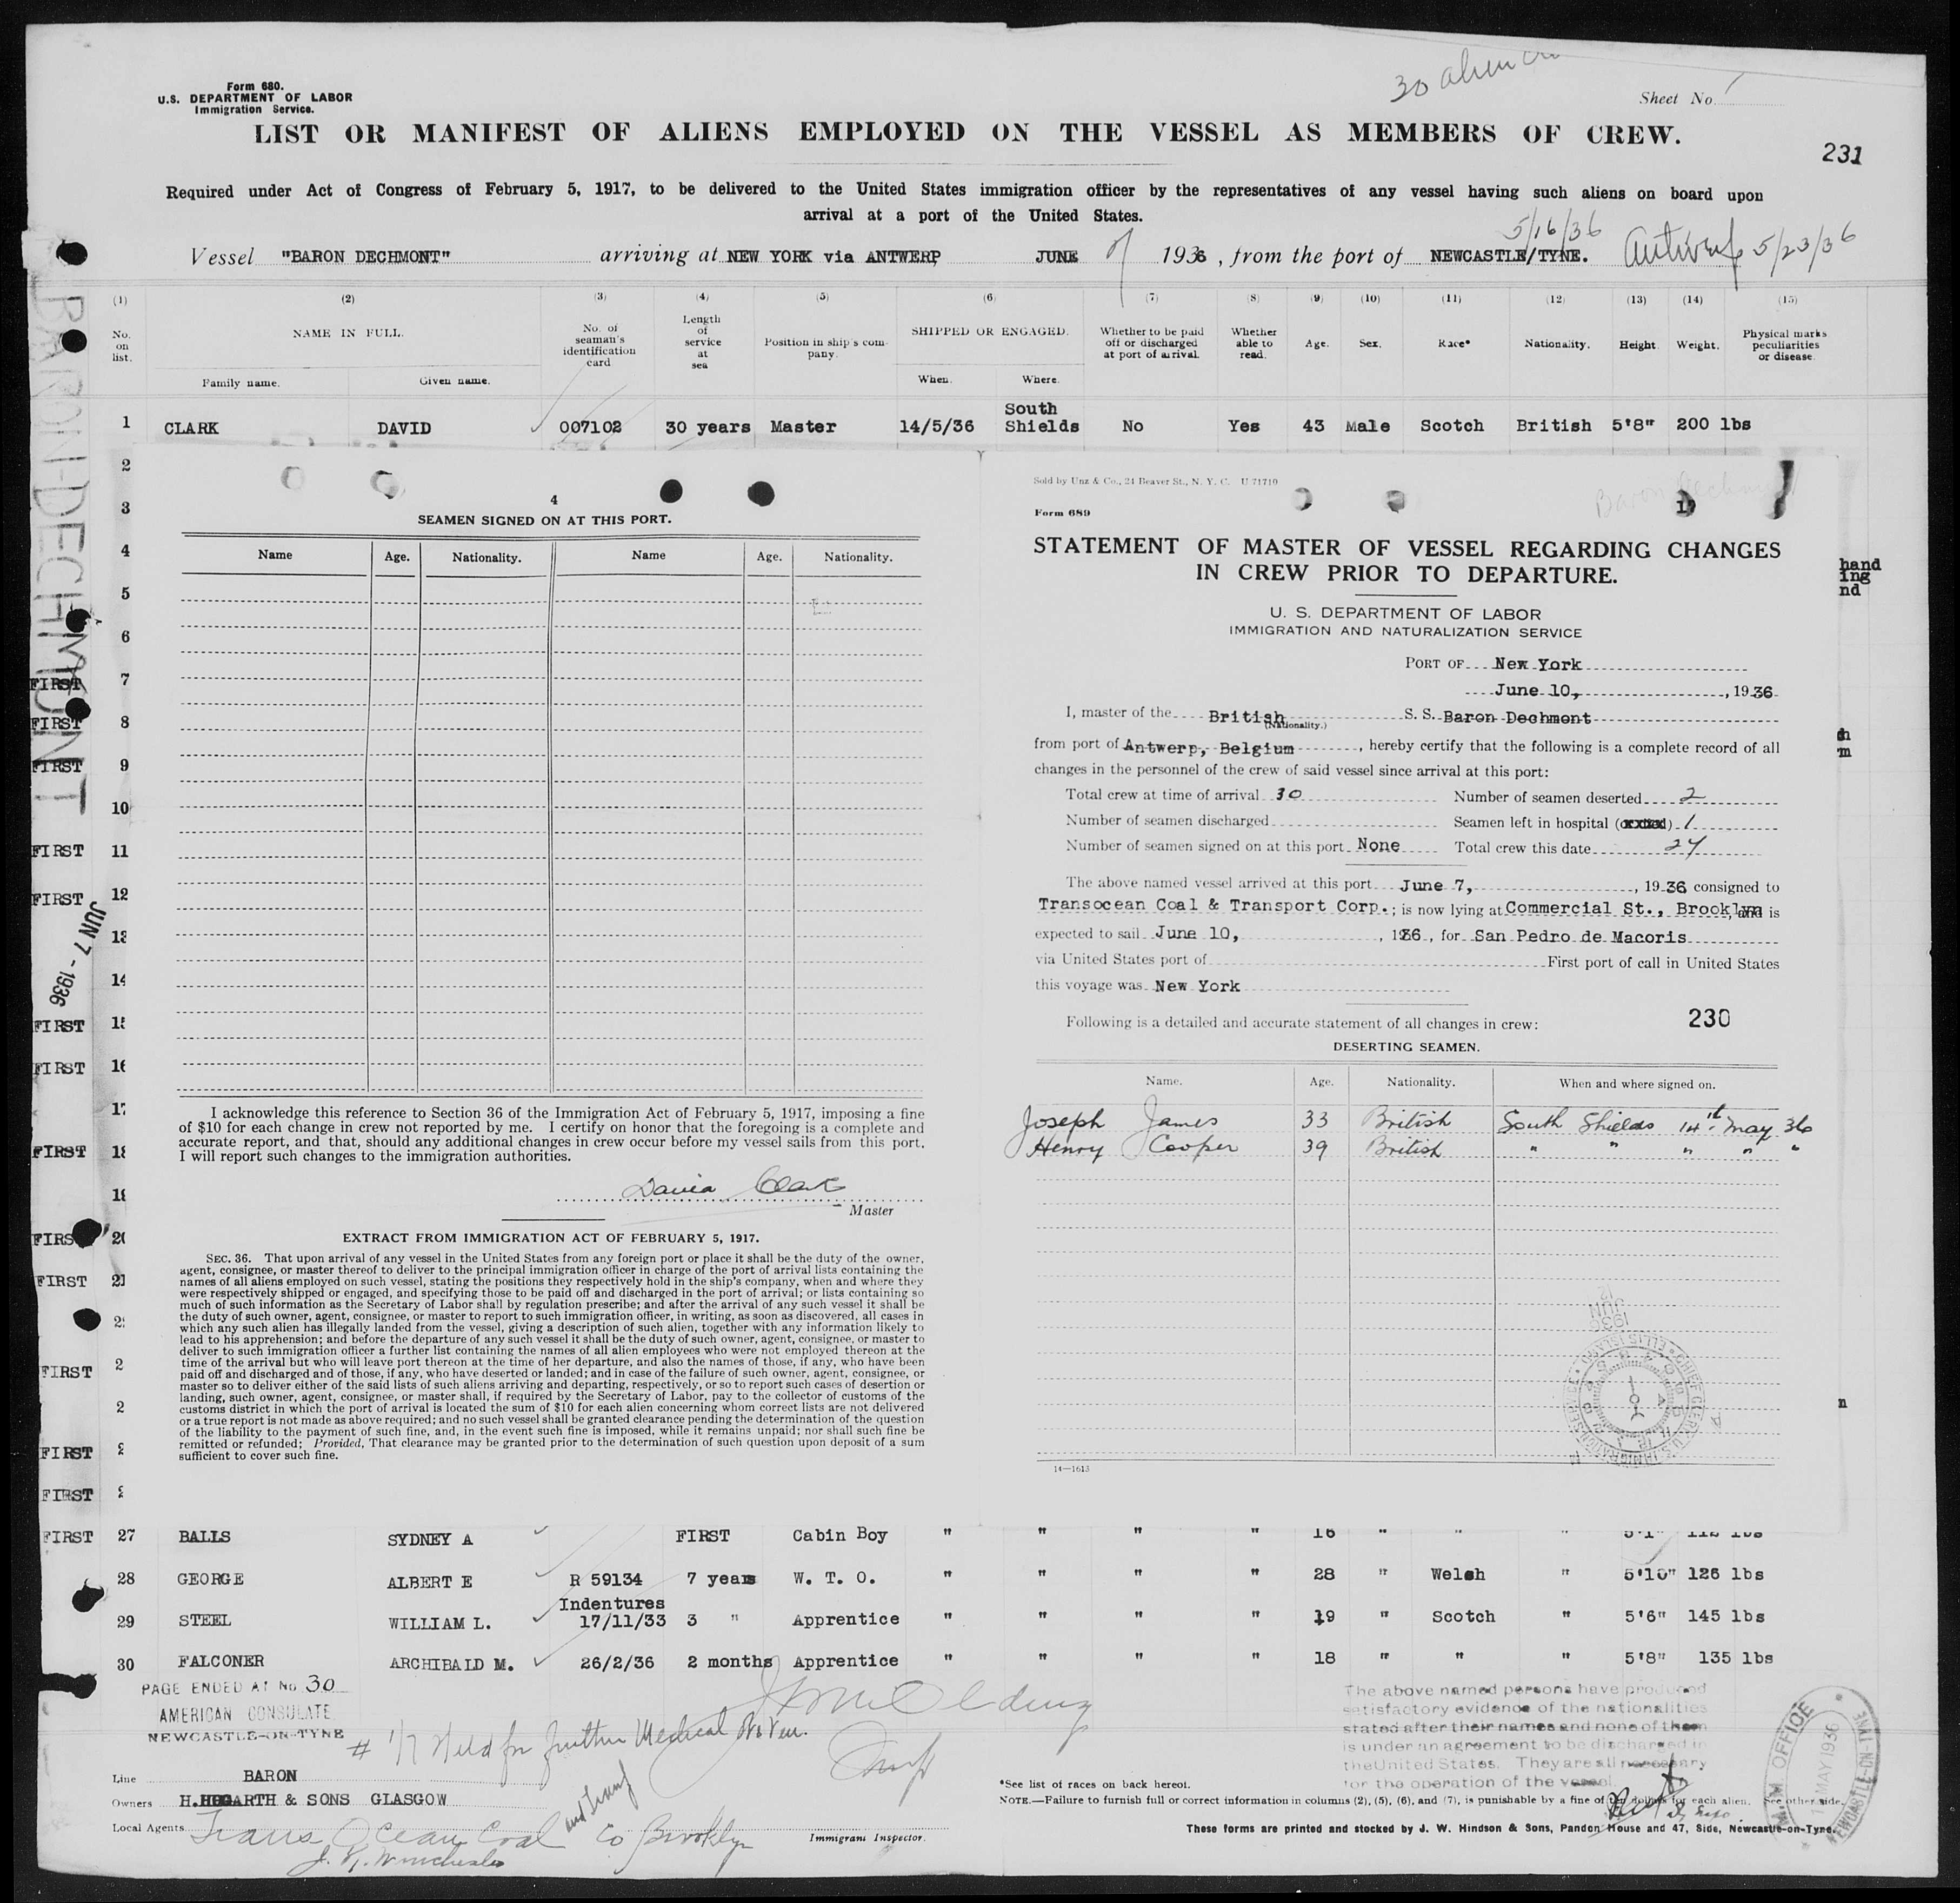 30 alien
Form 680.
U.S. DEPARTMENT OF LABOR
Immigration Service.
Sheet No. 1
LIST OR MANIFEST OF ALIENS EMPLOYED ON THE VESSEL AS MEMBERS OF CREW.
231
Required under Act of Congress of February 5, 1917, to be delivered to the United States immigration officer by the representatives of any vessel having such aliens on board upon
arrival at a port of the United States.
5/16/36
Vessel "BARON DECHMONT" arriving at NEW YORK via ANTWERP JUNE 7 1936, from the port of NEWCASTLE/TYNE. Antwerp 5/23/36
(1) (2) (3) (4) (5) (6) (7) (8) (9) (10) (11) (12) (13) (14) (15)
No. on list. NAME IN FULL. No. of seaman's identification card Length of service at sea Position in ship's company. SHIPPED OR ENGAGED. Whether to be paid off or discharged at port of arrival. Whether able to read. Age. Sex. Race* Nationality. Height. Weight. Physical marks peculiarities or disease.
Family name. Given name. When. Where.
1 CLARK DAVID 007102 30 years Master 14/5/36 South Shields No Yes 43 Male Scotch British 5'8" 200 lbs
BARON DECHMONT
JUN 7 - 1936
2
3
4
5
6
FIRST 7
FIRST 8
FIRST 9
10
FIRST 11
FIRST 12
FIRST
FIRST
FIRST
FIRST
FIRST
FIRST
FIRST
FIRST
hand
ing
nd
4
SEAMEN SIGNED ON AT THIS PORT.
Name Age. Nationality. Name Age. Nationality.
I acknowledge this reference to Section 36 of the Immigration Act of February 5, 1917, imposing a fine
of $10 for each change in crew not reported by me. I certify on honor that the foregoing is a complete and
accurate report, and that, should any additional changes in crew occur before my vessel sails from this port,
I will report such changes to the immigration authorities.
David Clark
Master
EXTRACT FROM IMMIGRATION ACT OF FEBRUARY 5, 1917.
SEC. 36. That upon arrival of any vessel in the United States from any foreign port or place it shall be the duty of the owner,
agent, consignee, or master thereof to deliver to the principal immigration officer in charge of the port of arrival lists containing the
names of all aliens employed on such vessel, stating the positions they respectively hold in the ship's company, when and where they
were respectively shipped or engaged, and specifying those to be paid off and discharged in the port of arrival; or lists containing so
much of such information as the Secretary of Labor shall by regulation prescribe; and after the arrival of any such vessel it shall be
the duty of such owner, agent, consignee, or master to report to such immigration officer, in writing, as soon as discovered, all cases in
which any such alien has illegally landed from the vessel, giving a description of such alien, together with any information likely to
lead to his apprehension; and before the departure of any such vessel it shall be the duty of such owner, agent, consignee, or master to
deliver to such immigration officer a further list containing the names of all alien employees who were not employed thereon at the
time of the arrival but who will leave port thereon at the time of her departure, and also the names of those, if any, who have been
paid off and discharged and of those, if any, who have deserted or landed; and in case of the failure of such owner, agent, consignee, or
master so to deliver either of the said lists of such aliens arriving and departing, respectively, or so to report such cases of desertion or
landing, such owner, agent, consignee, or master shall, if required by the Secretary of Labor, pay to the collector of customs of the
customs district in which the port of arrival is located the sum of $10 for each alien concerning whom correct lists are not delivered
or a true report is not made as above required; and no such vessel shall be granted clearance pending the determination of the question
of the liability to the payment of such fine, and, in the event such fine is imposed, while it remains unpaid; nor shall such fine be
remitted or refunded; Provided, That clearance may be granted prior to the determination of such question upon deposit of a sum
sufficient to cover such fine.
Sold by Unz & Co., 24 Beaver St., N. Y. C. U 71710
Baron Dechmont
Form 689
STATEMENT OF MASTER OF VESSEL REGARDING CHANGES
IN CREW PRIOR TO DEPARTURE.
U. S. DEPARTMENT OF LABOR
IMMIGRATION AND NATURALIZATION SERVICE
PORT OF New York
June 10, , 1936
I, master of the British S. S. Baron Dechmont
(Nationality.)
from port of Antwerp, Belgium , hereby certify that the following is a complete record of all
changes in the personnel of the crew of said vessel since arrival at this port:
Total crew at time of arrival 30 Number of seamen deserted 2
Number of seamen discharged Seamen left in hospital 1
Number of seamen signed on at this port None Total crew this date 27
The above named vessel arrived at this port June 7, , 1936 consigned to
Transocean Coal & Transport Corp.; is now lying at Commercial St., Brooklyn, and is
expected to sail June 10, , 1936, for San Pedro de Macoris
via United States port of First port of call in United States
this voyage was New York
Following is a detailed and accurate statement of all changes in crew: 230
DESERTING SEAMEN.
Name. Age. Nationality. When and where signed on.
Joseph James 33 British South Shields 14th May 36
Henry Cooper 39 British " " " " "
14—1613
FIRST 27 BALLS SYDNEY A FIRST Cabin Boy " " " " 16 " " "
28 GEORGE ALBERT E R 59134 7 years W. T. O. " " " " 28 " Welsh " 5'10" 126 lbs
29 STEEL WILLIAM L. Indentures 17/11/33 3 " Apprentice " " " " 19 " Scotch " 5'6" 145 lbs
30 FALCONER ARCHIBALD M. 26/2/36 2 months Apprentice " " " " 18 " " " 5'8" 135 lbs
PAGE ENDED AT No. 30
AMERICAN CONSULATE
NEWCASTLE-ON-TYNE
# 1/7 Held for further Medical
The above named persons have produced
satisfactory evidence of the nationalities
stated after their names and none of them
is under an agreement to be discharged in
the United States. They are all necessary
for the operation of the vessel.
M. M. OFFICE
MAY 1936
NEWCASTLE-ON-TYNE
Line BARON
Owners H.HOGARTH & SONS GLASGOW
Local Agents Trans Ocean Coal Co Brooklyn
J. R. Winchester
Immigrant Inspector.
*See list of races on back hereof.
NOTE.—Failure to furnish full or correct information in columns (2), (5), (6), and (7), is punishable by a fine of ten dollars for each alien. See other side.
These forms are printed and stocked by J. W. Hindson & Sons, Pandon House and 47, Side, Newcastle-on-Tyne.